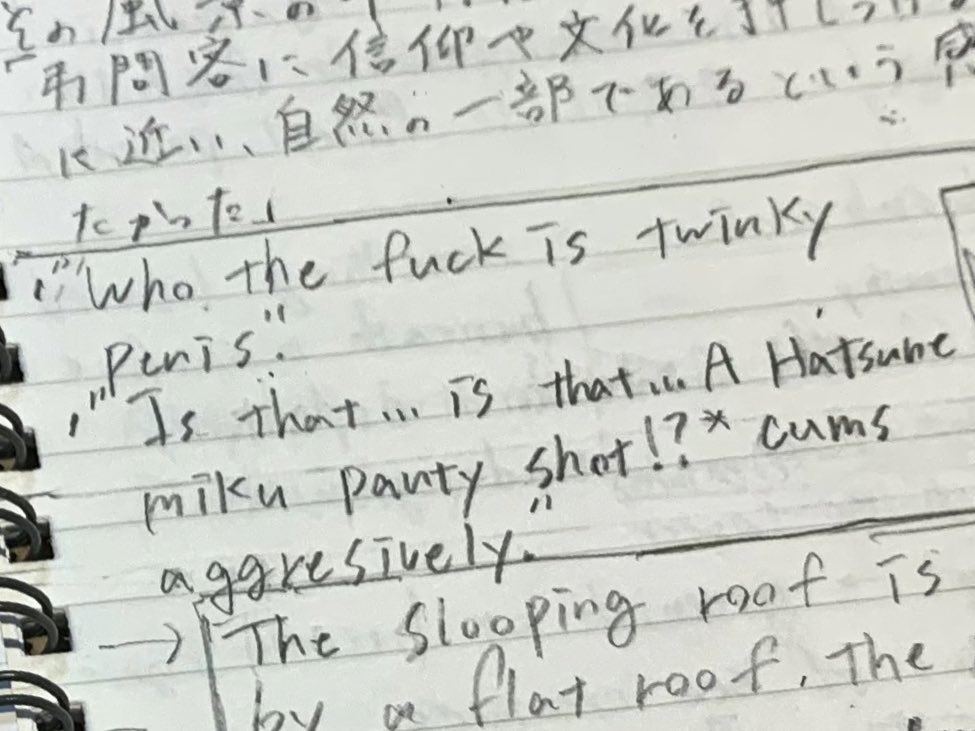 その風景の
訪問客に信仰や文化を
に近い、自然の一部であるという
たからだ。
"Who the fuck is twinky
penis."
"Is that... is that... A Hatsune
miku panty shot!?* cums
aggresively."
→ The slooping roof is
by a flat roof. The